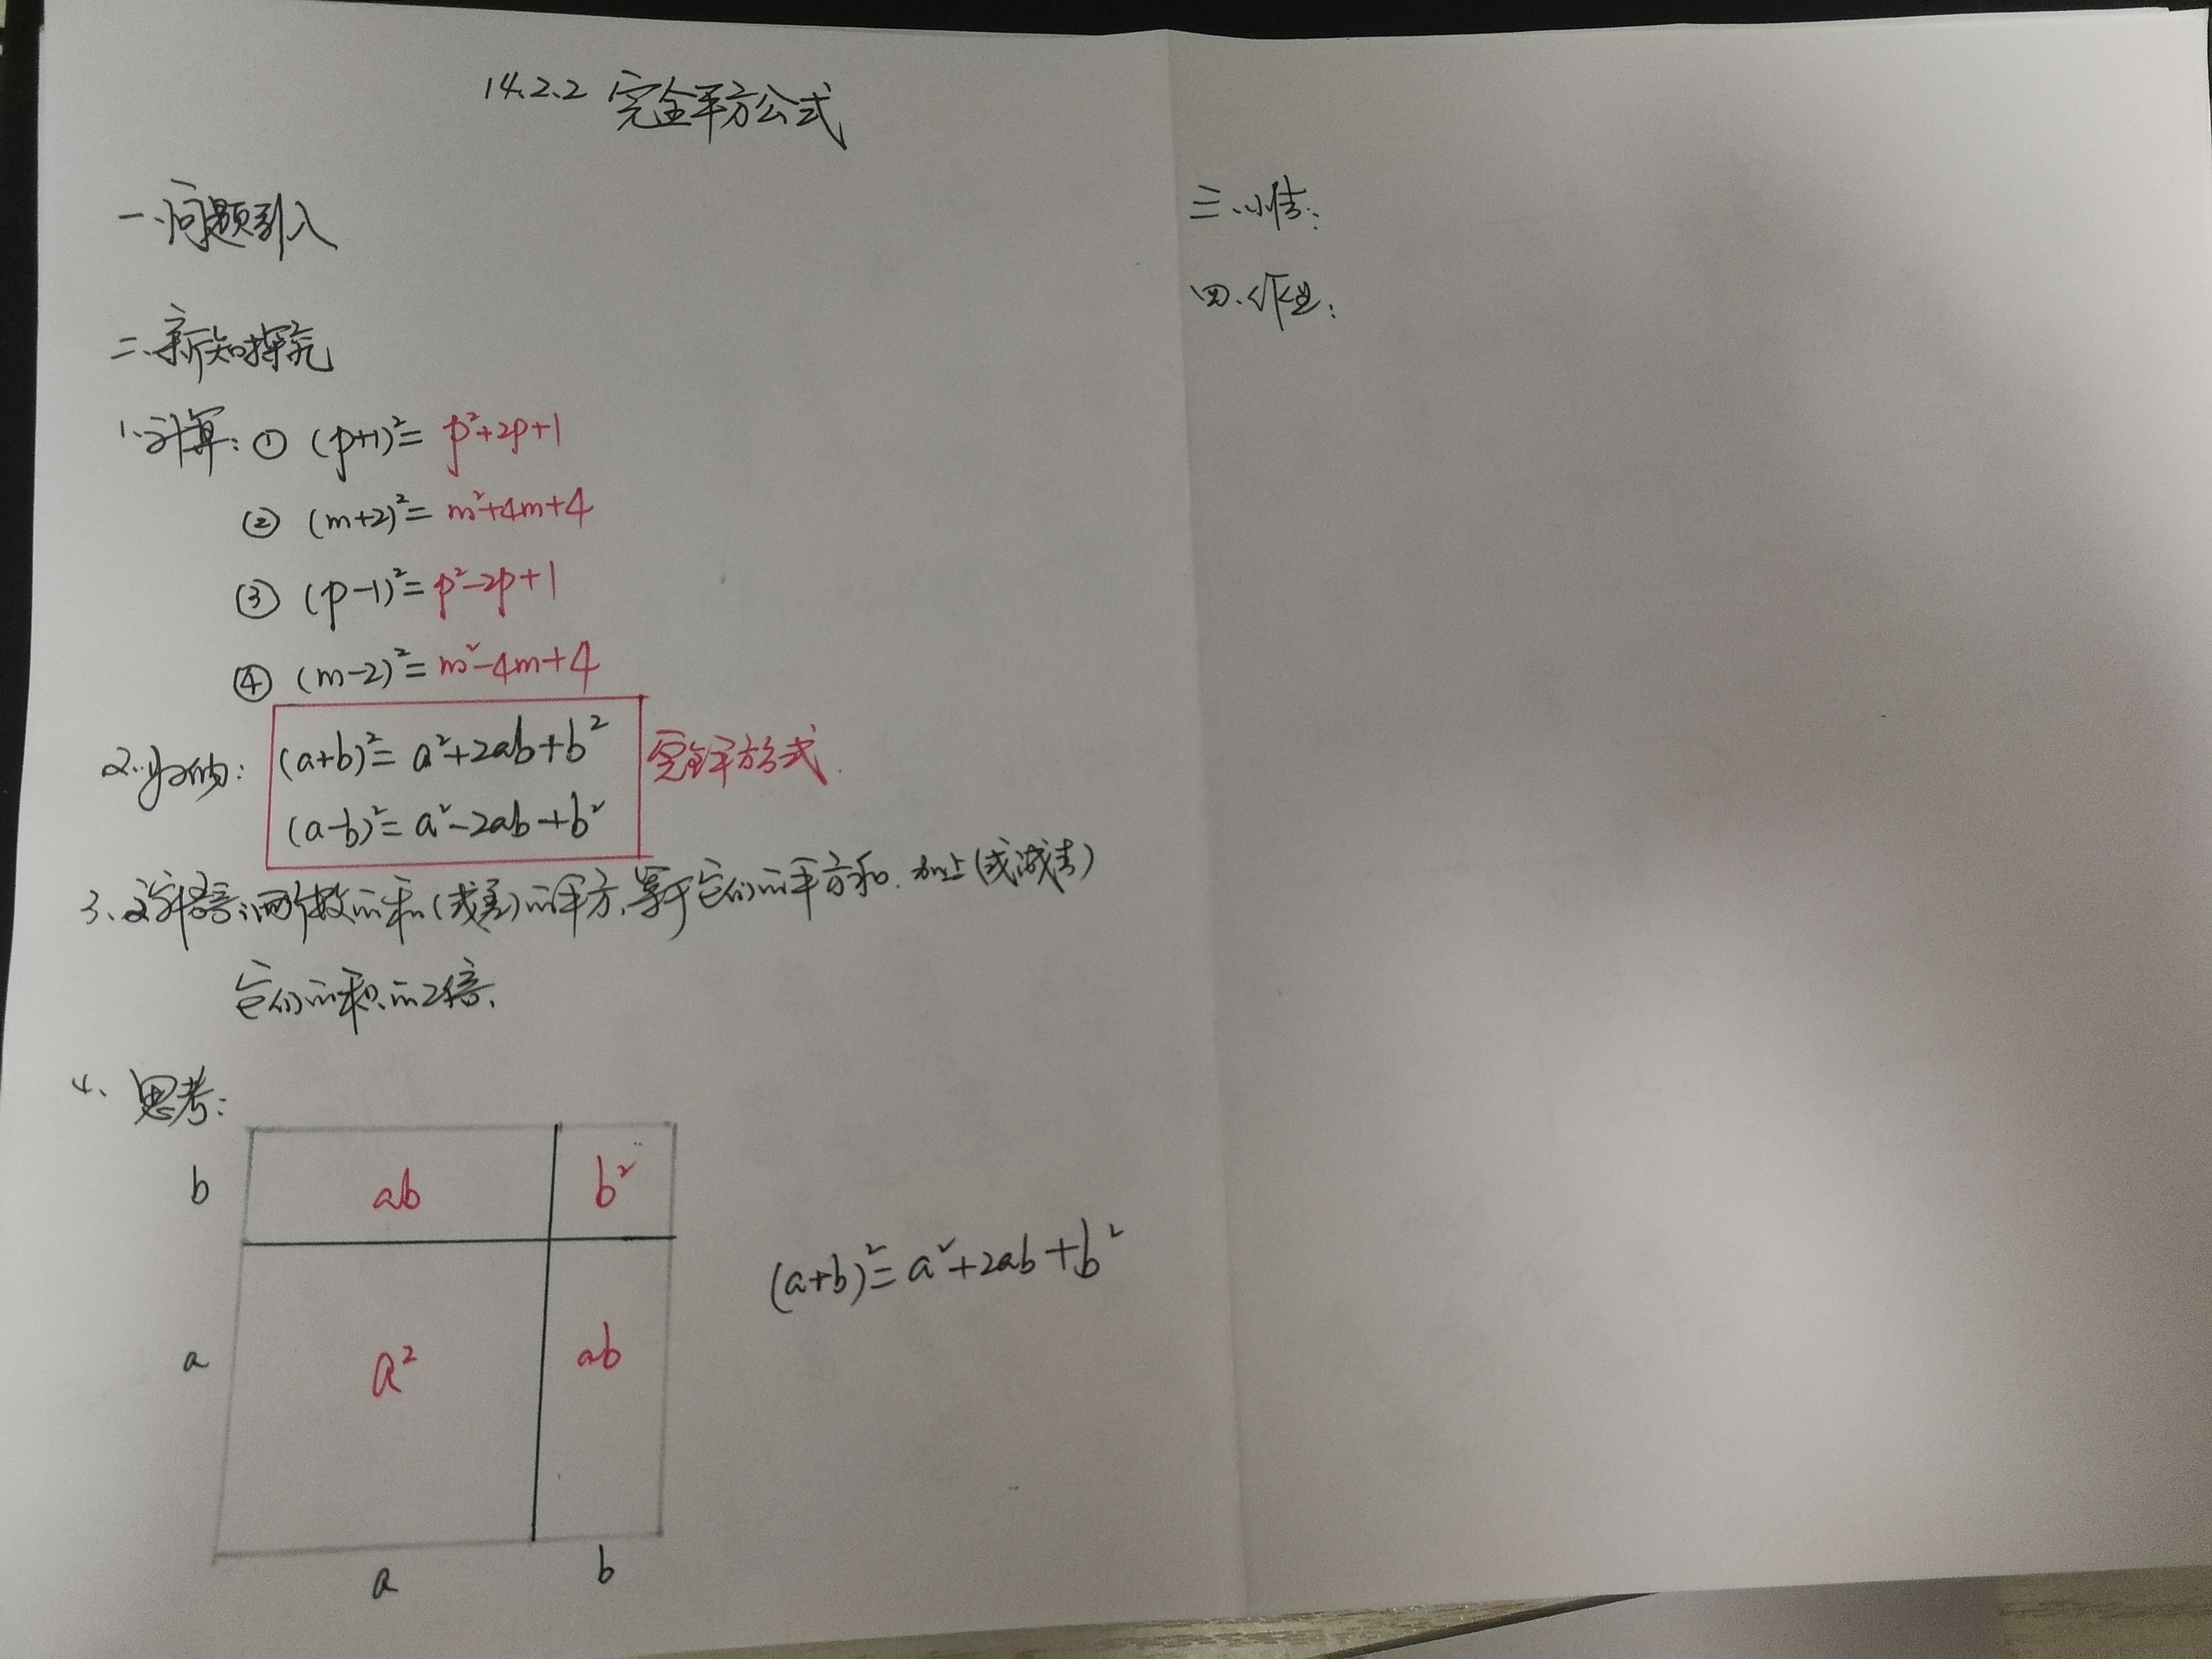 14.2.2 完全平方公式
一、问题引入
二、新知探究
1、计算:① (p+1)²= p²+2p+1
② (m+2)²= m²+4m+4
③ (p-1)²= p²-2p+1
④ (m-2)²= m²-4m+4
2、归纳: (a+b)²= a²+2ab+b²
(a-b)²= a²-2ab+b²
完全平方公式
3、文字语言:两个数的和(或差)的平方,等于它们的平方和,加上(或减去)
它们的积的2倍.
4、思考:
b ab b²
a a² ab
a b
(a+b)²= a²+2ab+b²
三、小结:
四、作业: